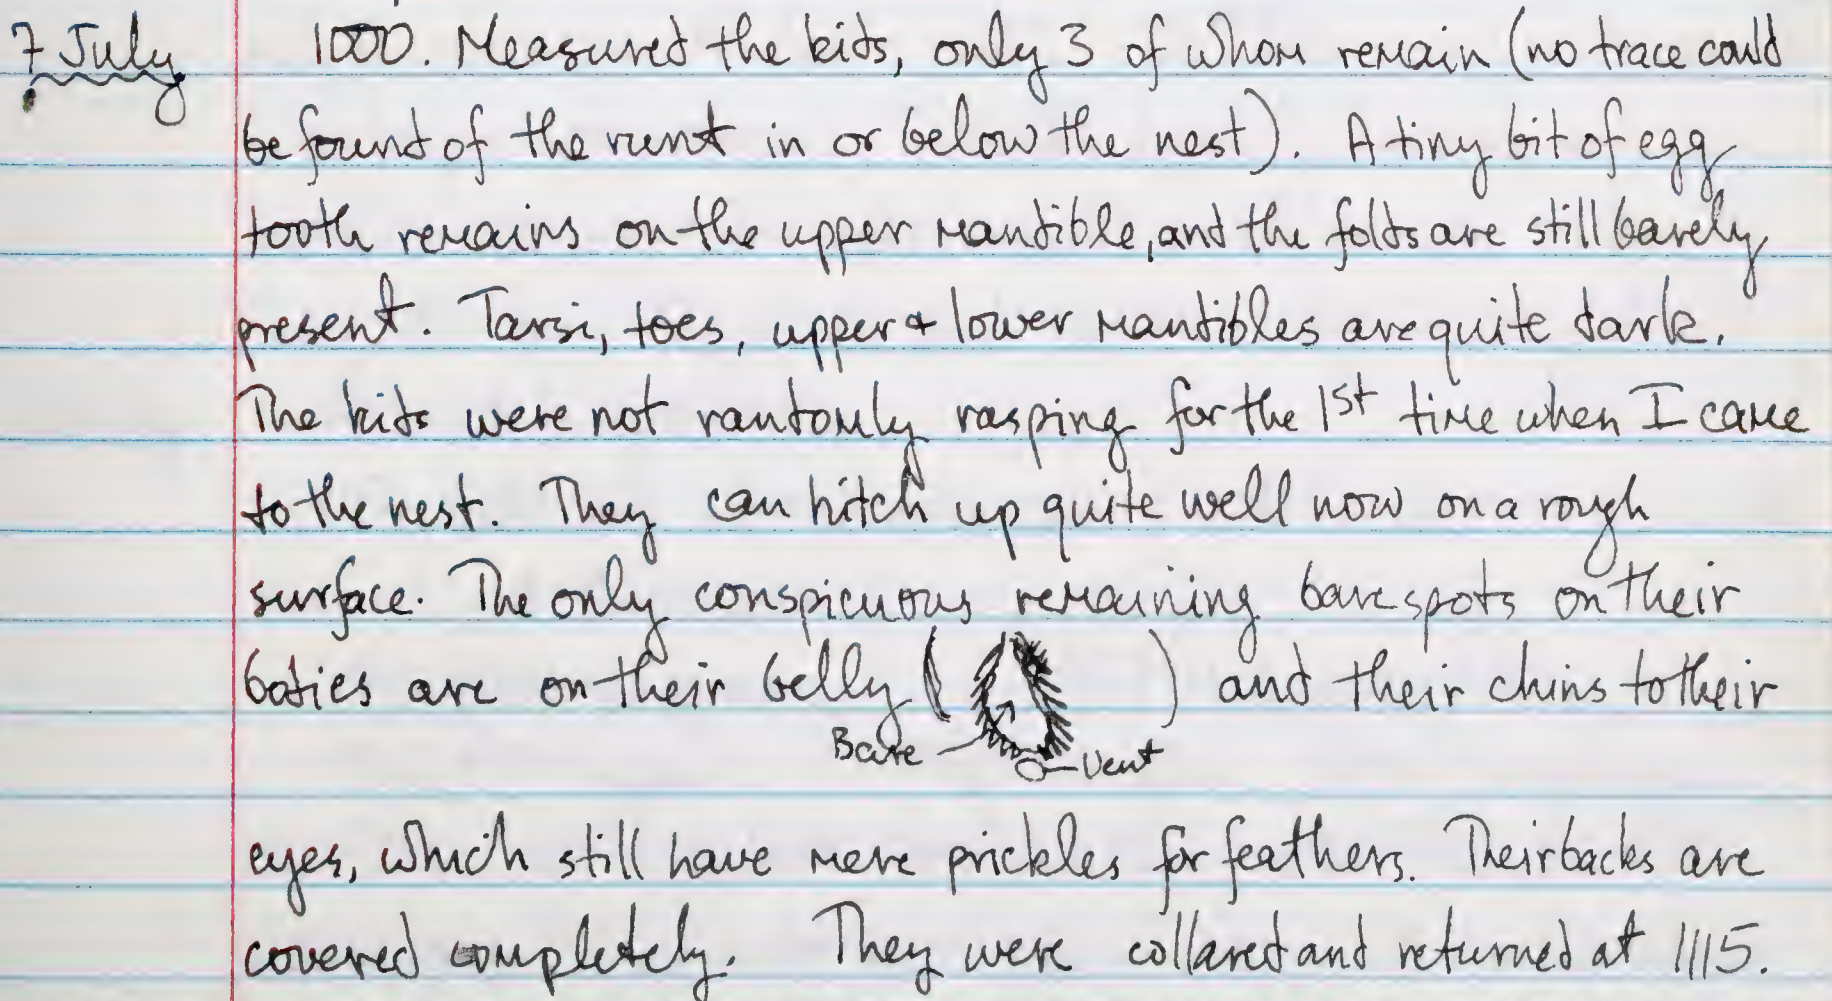 7 July 1000. Measured the kids, only 3 of whom remain (no trace could
be found of the runt in or below the nest). A tiny bit of egg
tooth remains on the upper mandible, and the folds are still barely
present. Tarsi, toes, upper & lower mandibles are quite dark.
The kids were not randomly rasping for the 1st time when I came
to the nest. They can hitch up quite well now on a rough
surface. The only conspicuous remaining bare spots on their
bodies are on their belly ( ) and their chins to their
Bare Vent
eyes, which still have mere prickles for feathers. Their backs are
covered completely. They were collared and returned at 1115.